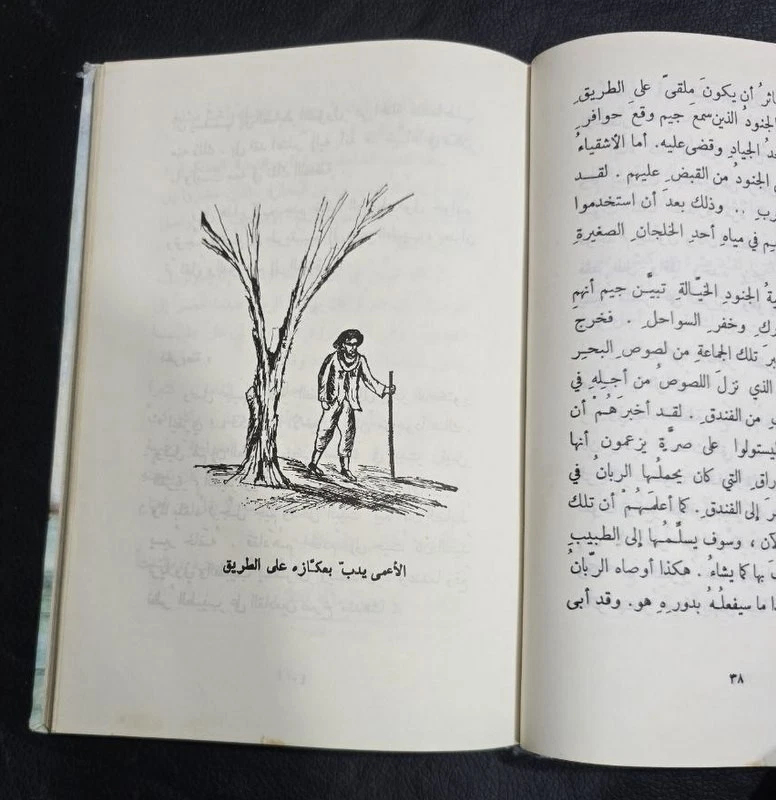 الأعمى يدبّ بعكّازه على الطريق
أن يكونَ ملقىً على الطريقِ
الذين سمعَ جيم وقعَ حوافرِ
الجيادِ وقضى عليه. أما الأشقياءُ
الجنودُ من القبضِ عليهم. لقد
.. وذلك بعدَ أن استخدموا
في مياهِ أحدِ الخلجانِ الصغيرةِ
الجنودِ الخيّالةِ تبيّن جيم أنهم
وخفرِ السواحلِ. فخرج
تلك الجماعةِ من لصوصِ البحرِ
الذي نزلَ اللصوصُ من أجلِهِ في
من الفندقِ. لقد أخبرَهُمْ أن
ليستولوا على صرّةٍ يزعمون أنها
التي كان يحملُها الربانُ في
إلى الفندقِ. كما أعلمَهُمْ أن تلك
، وسوف يسلّمُها إلى الطبيبِ
بها كما يشاءُ. هكذا أوصاه الرّبانُ
ما سيفعلُهُ بدورِهِ هو. وقد أبى
٣٨